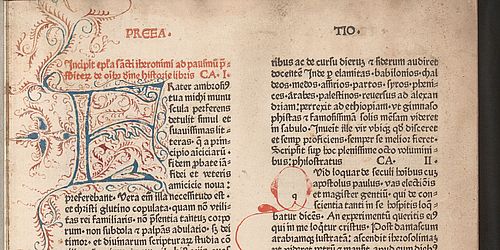 PREFA
TIO
Incipit ep̃la sãcti ihronimi ad paulinũ p̃
sbiteꝝ de oĩbꝰ diuine historie libris CA · I ·
Frater ambrosiꝰ
tua michi munu
scula perferens
detulit simul et
suauissimas lit⸗
teras : q̃ a prin⸗
cipio amiciciaꝝ
fidem ꝓbate iã⸗
fidei et veteris
amicicie noua :
preferebant · Vera em̃ illa necessitudo est ·
et christi glutino copulata · quam nõ vtili⸗
tas rei familiaris · nõ p̃sentia tantuꝫ corpo
rum · non subdola et palpãs adulatio · sꝫ dei
timor · et diuinarum scripturaꝝ studia cõ
tribus ac de cursu dieruꝫ ⁊ siderum audiret
docentẽ · Inde p̱ elamitas · babilonios · chal
deos · medos · assirios · partos · syros · pheni⸗
ces · arabes · palestinos · reuersus ad alexan
driam : perrexit ad ethiopiam : vt gimnoso
phistas ⁊ famosissimã solis mẽsam videret
in sabulo · Inuenit ille vir vbiqꝫ qđ disceret
et semp̱ proficiens · semper se melior fieret ·
Scripsit sup̱ hoc plenissime octo volumini⸗
bus : philostratus CA II ·
Qvid loquar de seculi hoibus cuꝫ
apostolus paulus · vas electiõis
et magister gentiũ · qui de con⸗
scientia tanti in se hospitis loq̃⸗
batur dicẽs · An experimentũ queritis eiꝰ
qui in me loq̃tur cristus · Post damascum
arabiamqꝫ lustratã : ascendit iherosolimã